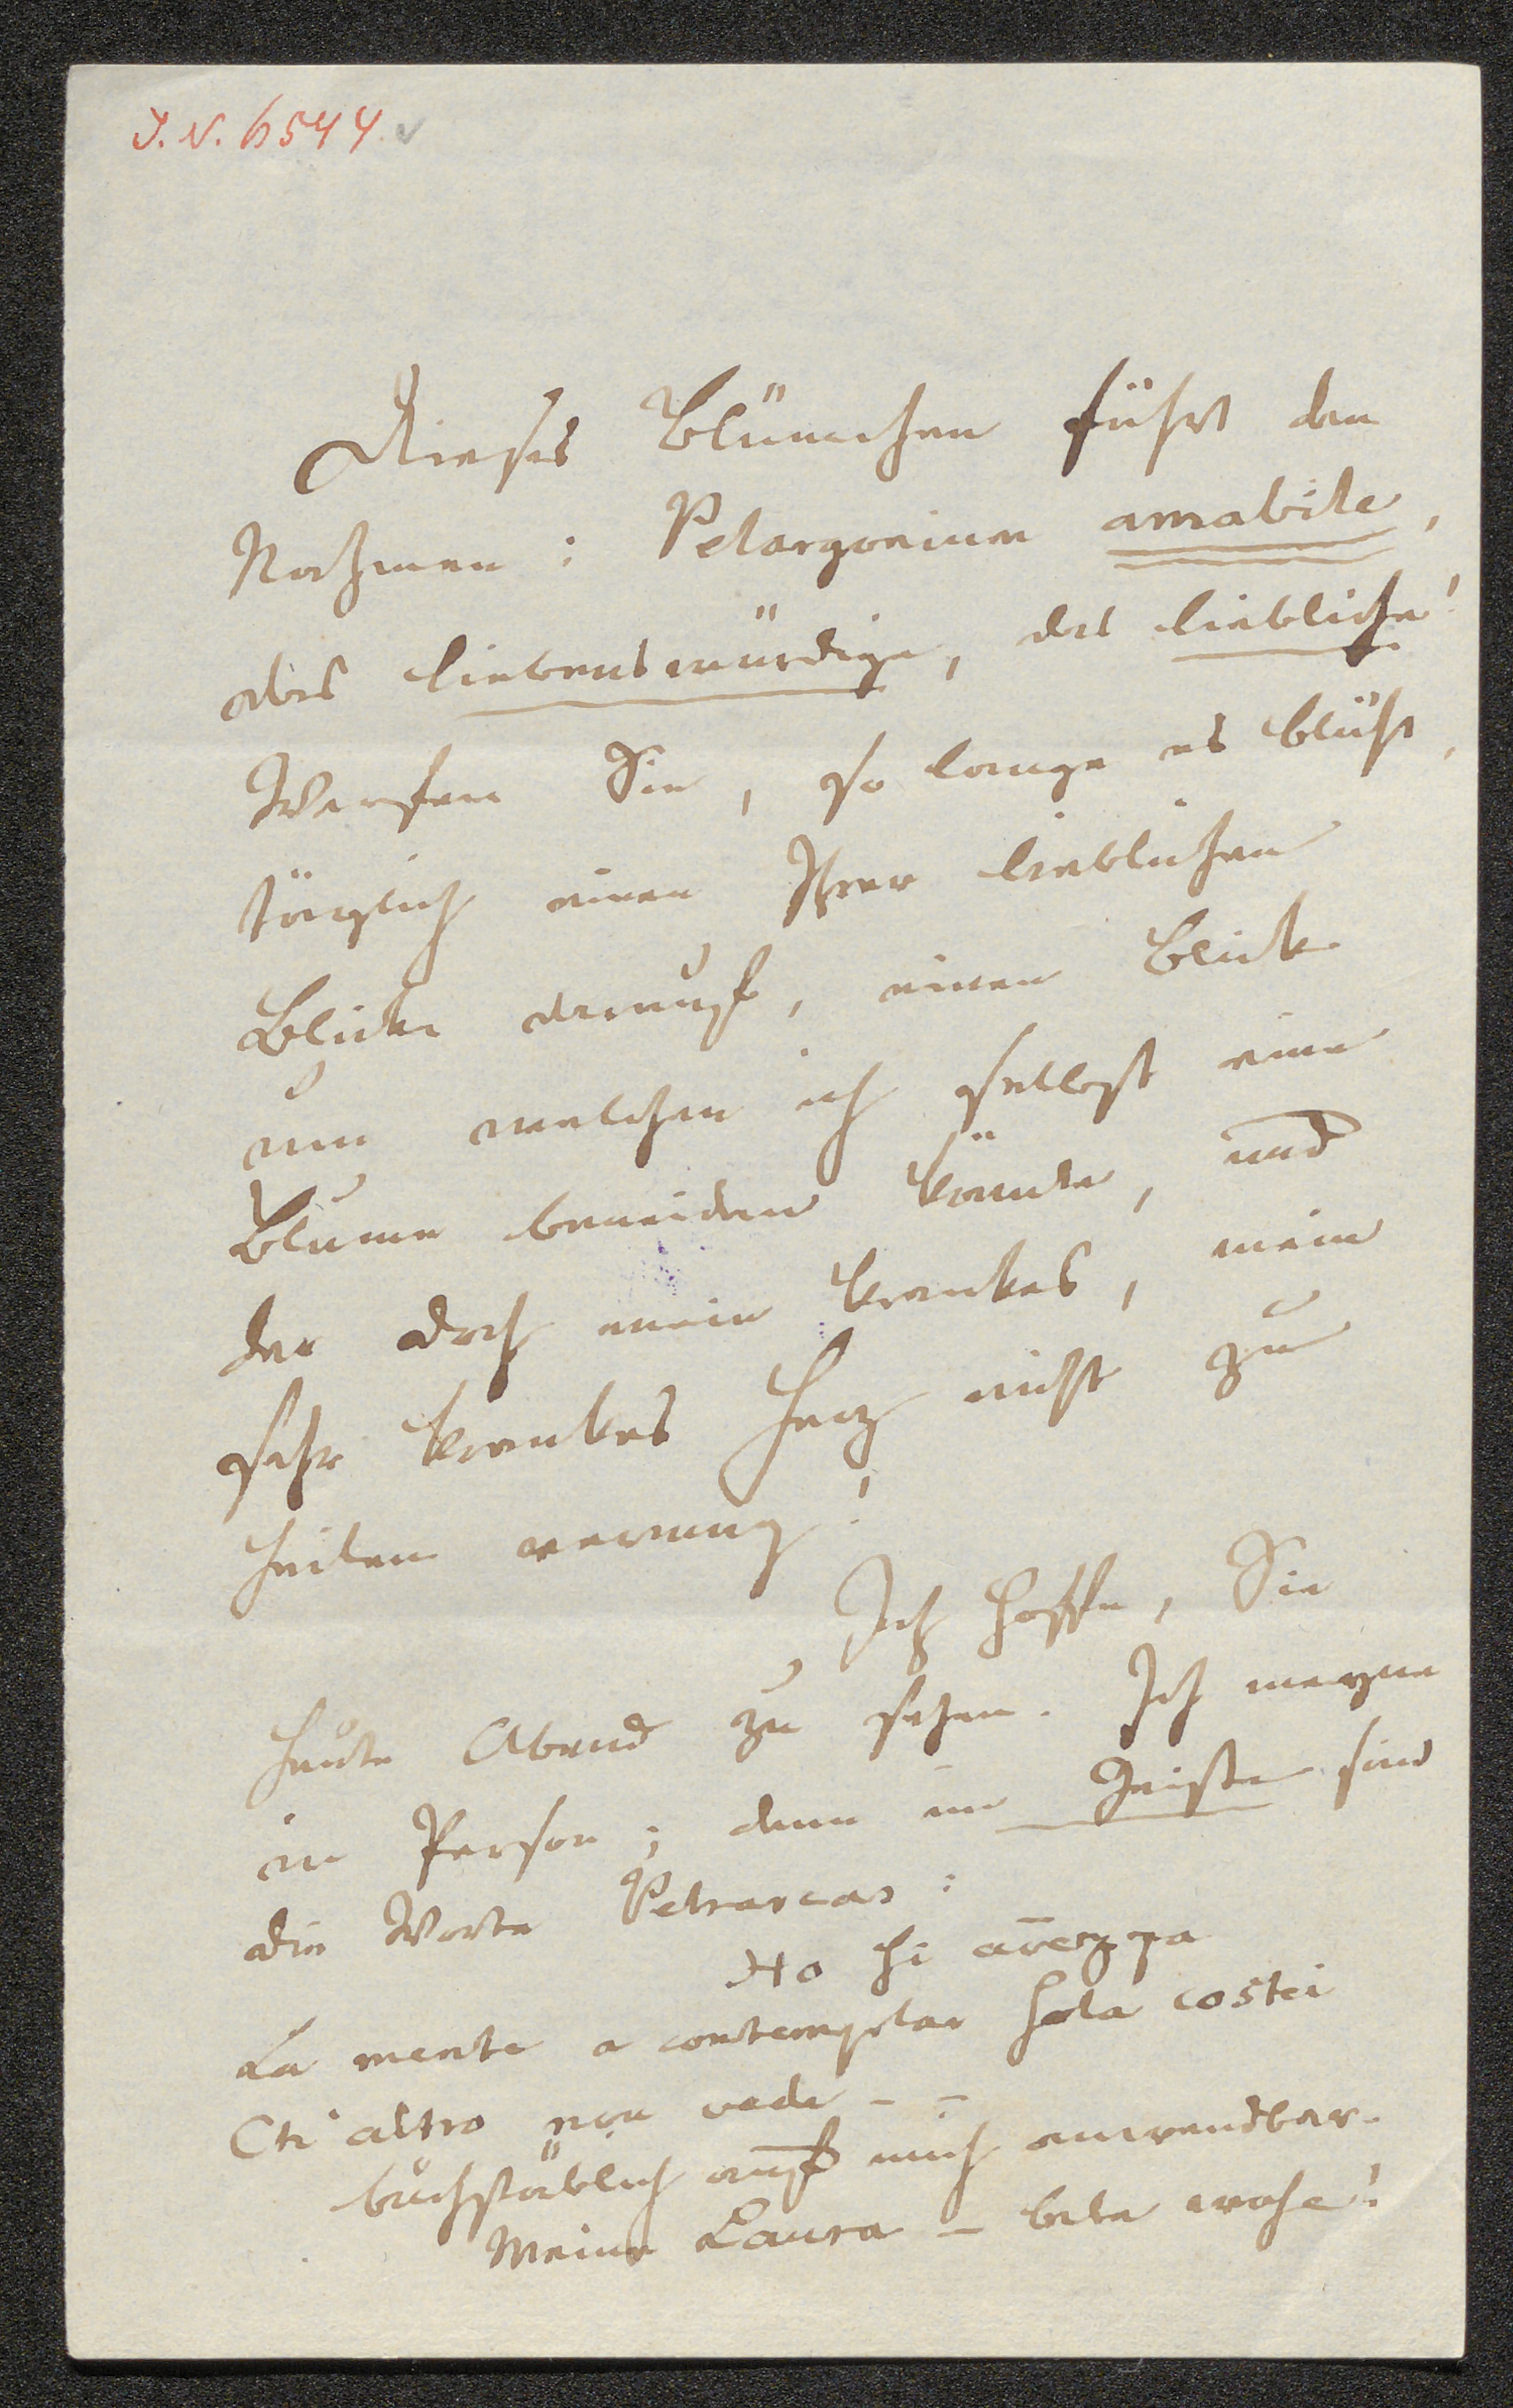 J. N. 6544.
Dieses Blümchen führt den
Nahmen : Pelargonium amabile,
das liebenswürdige, das liebliche!
Werfen Sie, so lange es blüht,
täglich einen Ihrer lieblichen
Blicke darauf, einen Blick
um welchen ich selbst eine
Blume beneiden könnte, und
der doch mein krankes, mein
sehr krankes Herz nicht zu
heilen vermag!
Ich hoffe, Sie
heute Abend zu sehen. Ich meyne
in Person ; denn im Geiste sind
die Worte Petrarcas :
Ho sì avezza
La mente a contemplar sola costei
Ch' altro non vede - -
buchstäblich auf mich anwendbar.
Meine Laura - lebe wohl!